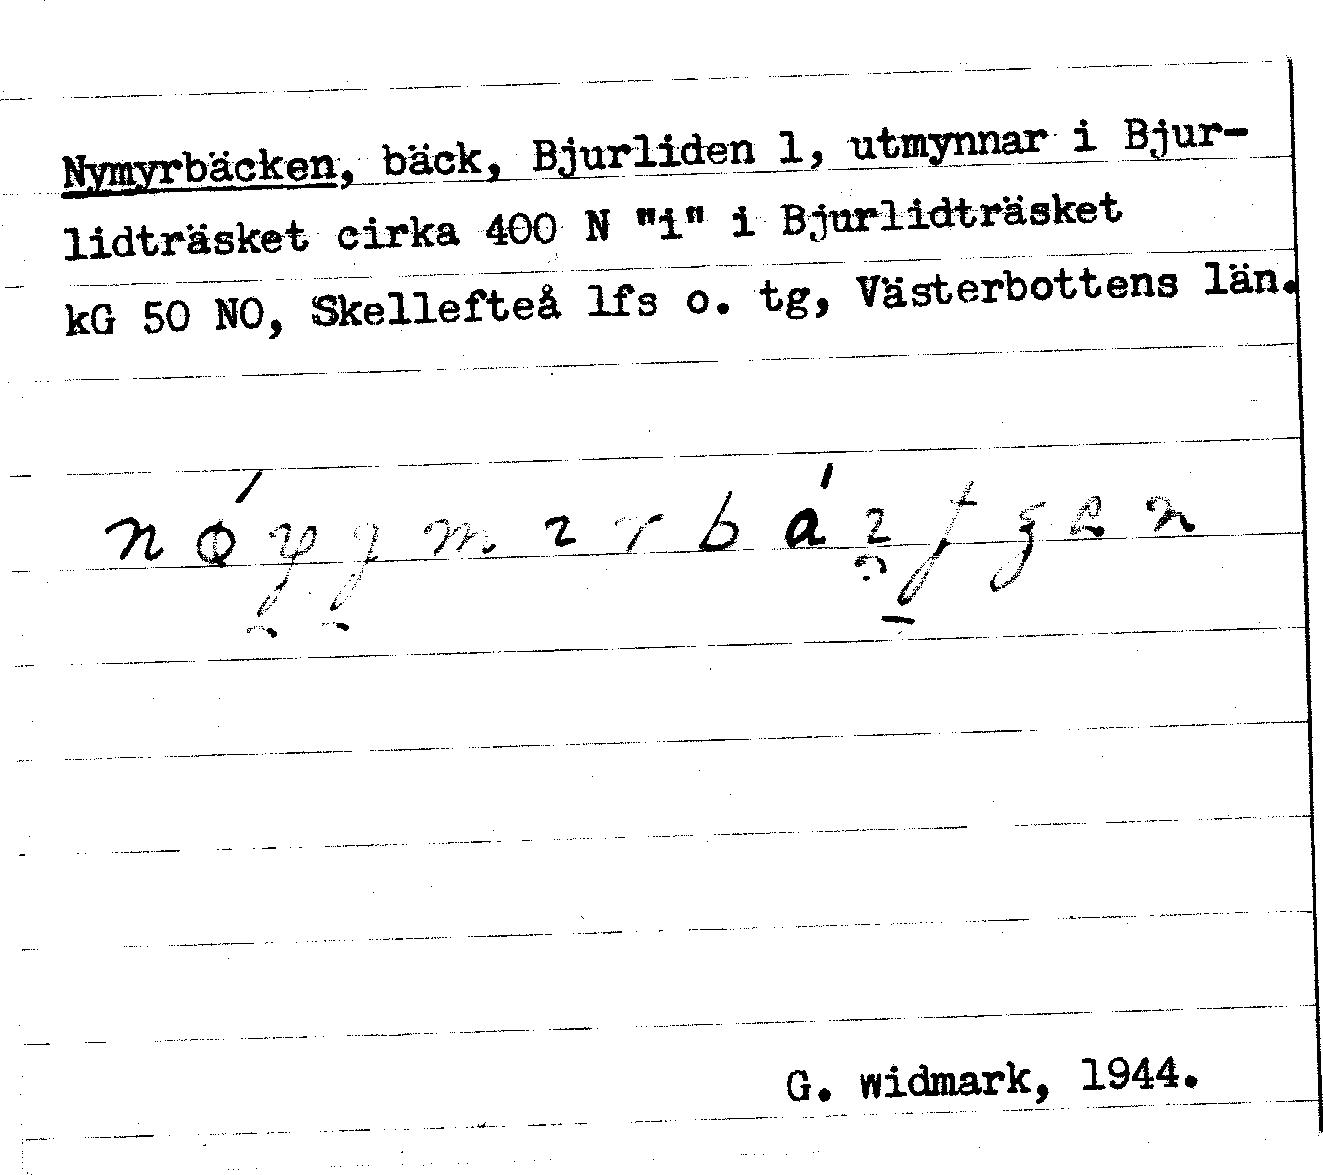 Nymyrbäcken, bäck, Bjurliden 1, utmynnar i Bjur-
lidträsket cirka 400 N "i" i Bjurlidträsket
kG 50 NO, Skellefteå lfs o. tg, Västerbottens län.
G. widmark, 1944.